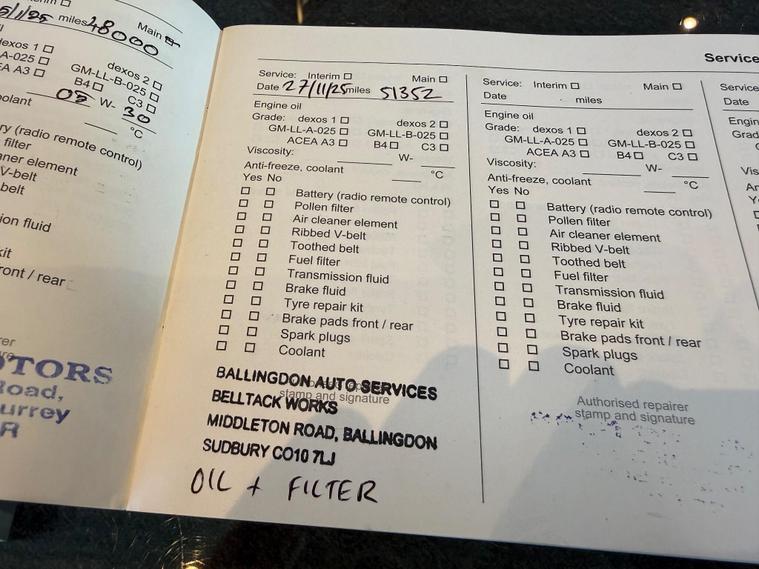 5/1/25 miles 48000
Main
dexos 1 dexos 2
A-025 GM-LL-B-025
EA A3 B4 C3
05 W- 30
oolant °C
ry (radio remote control)
filter
aner element
V-belt
belt
ion fluid
kit
ront / rear
rer
OTORS
Road,
urrey
R
Service: Interim Main
Date 27/11/25 miles 51352
Engine oil
Grade: dexos 1 dexos 2
GM-LL-A-025 GM-LL-B-025
ACEA A3 B4 C3
Viscosity: W-
Anti-freeze, coolant °C
Yes No
Battery (radio remote control)
Pollen filter
Air cleaner element
Ribbed V-belt
Toothed belt
Fuel filter
Transmission fluid
Brake fluid
Tyre repair kit
Brake pads front / rear
Spark plugs
Coolant
BALLINGDON AUTO SERVICES
stamp and signature
BELLTACK WORKS
MIDDLETON ROAD, BALLINGDON
SUDBURY CO10 7LJ
OIL + FILTER
Service
Service: Interim Main
Date miles
Engine oil
Grade: dexos 1 dexos 2
GM-LL-A-025 GM-LL-B-025
ACEA A3 B4 C3
Viscosity: W-
Anti-freeze, coolant °C
Yes No
Battery (radio remote control)
Pollen filter
Air cleaner element
Ribbed V-belt
Toothed belt
Fuel filter
Transmission fluid
Brake fluid
Tyre repair kit
Brake pads front / rear
Spark plugs
Coolant
Authorised repairer
stamp and signature
Service
Date
Engin
Grad
Vis
A
Y